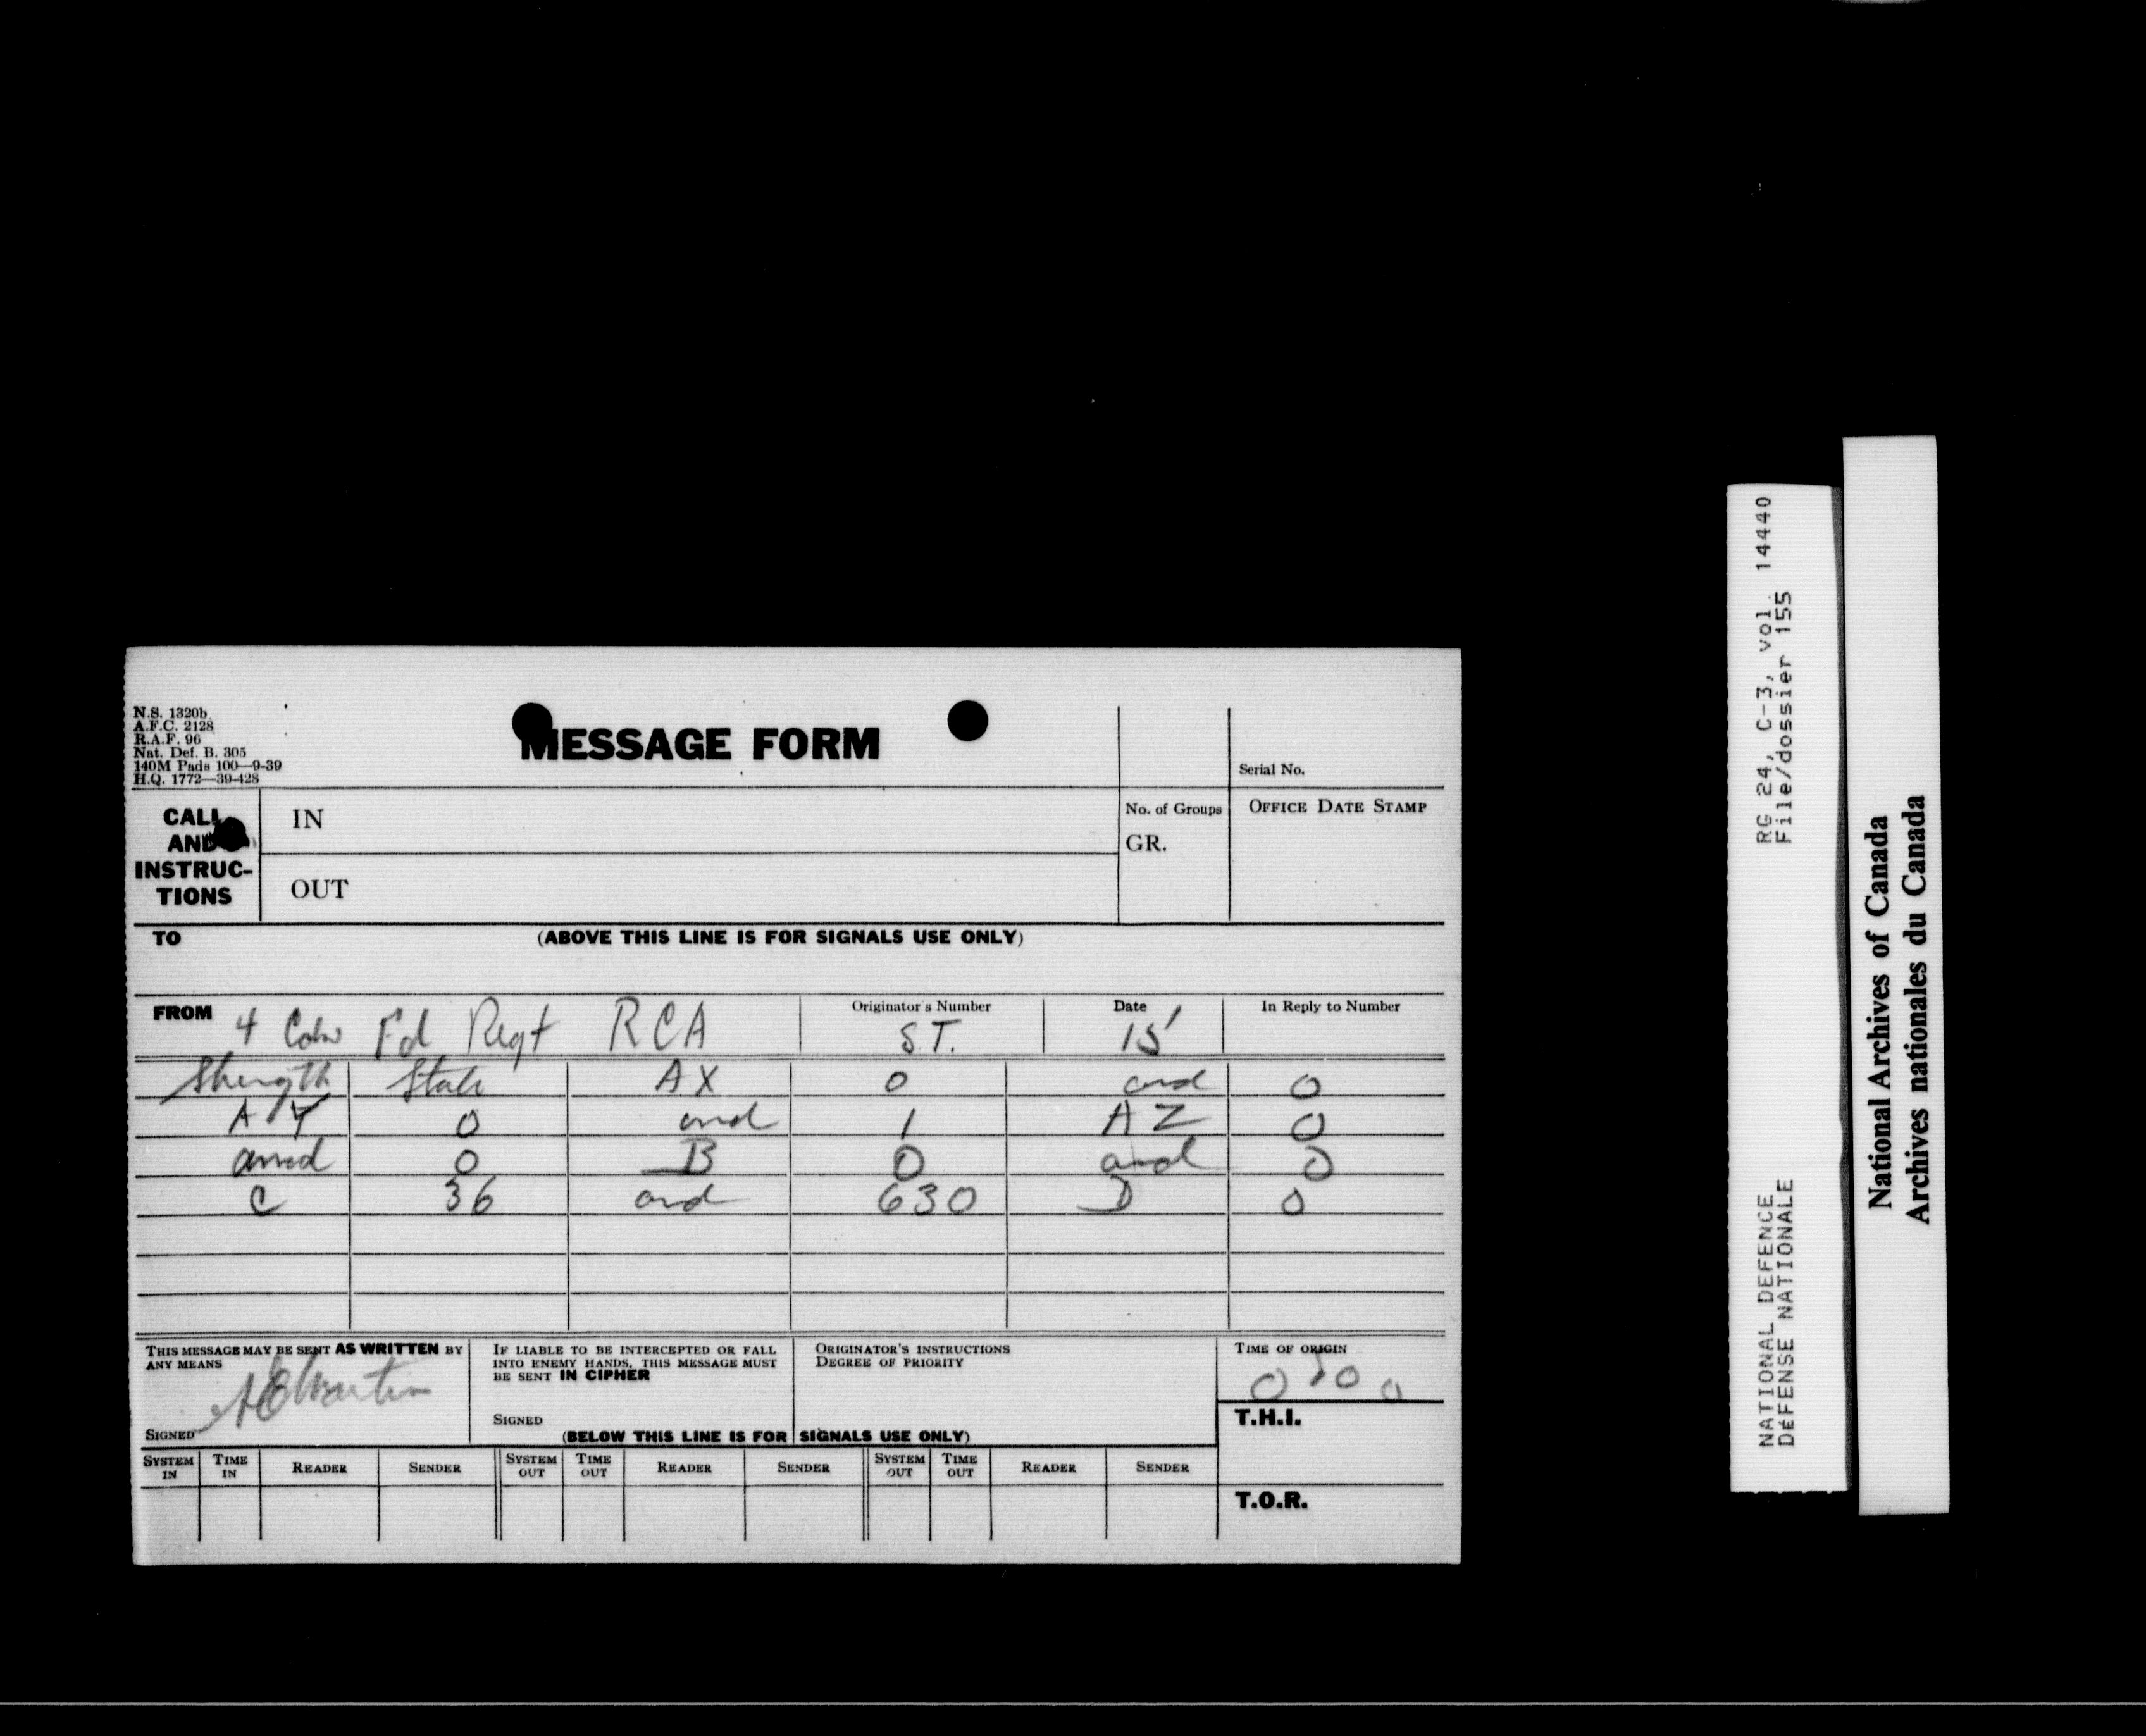 N.S. 1320b
A.F.C. 2128
R.A.F. 96
Nat. Def. B. 305
140M Pads 100—9-39
H.Q. 1772—39-428
MESSAGE FORM
Serial No.
CALL AND INSTRUC-TIONS
IN
OUT
No. of Groups
GR.
OFFICE DATE STAMP
TO (ABOVE THIS LINE IS FOR SIGNALS USE ONLY)
FROM 4 Cdn Fd Regt RCA
Originator's Number S.T.
Date 15
In Reply to Number
Strength State AX 0 and 0
AY 0 and 1 AZ 0
and 0 B 0 and 0
C 36 and 630 D 0
THIS MESSAGE MAY BE SENT AS WRITTEN BY
ANY MEANS
SIGNED
IF LIABLE TO BE INTERCEPTED OR FALL
INTO ENEMY HANDS, THIS MESSAGE MUST
BE SENT IN CIPHER
SIGNED
ORIGINATOR'S INSTRUCTIONS
DEGREE OF PRIORITY
TIME OF ORIGIN
T.H.I.
(BELOW THIS LINE IS FOR SIGNALS USE ONLY)
SYSTEM IN TIME IN READER SENDER SYSTEM OUT TIME OUT READER SENDER SYSTEM OUT TIME OUT READER SENDER
T.O.R.
RG 24, C-3, vol. 14440
File/dossier 155
NATIONAL DEFENCE
DÉFENSE NATIONALE
National Archives of Canada
Archives nationales du Canada